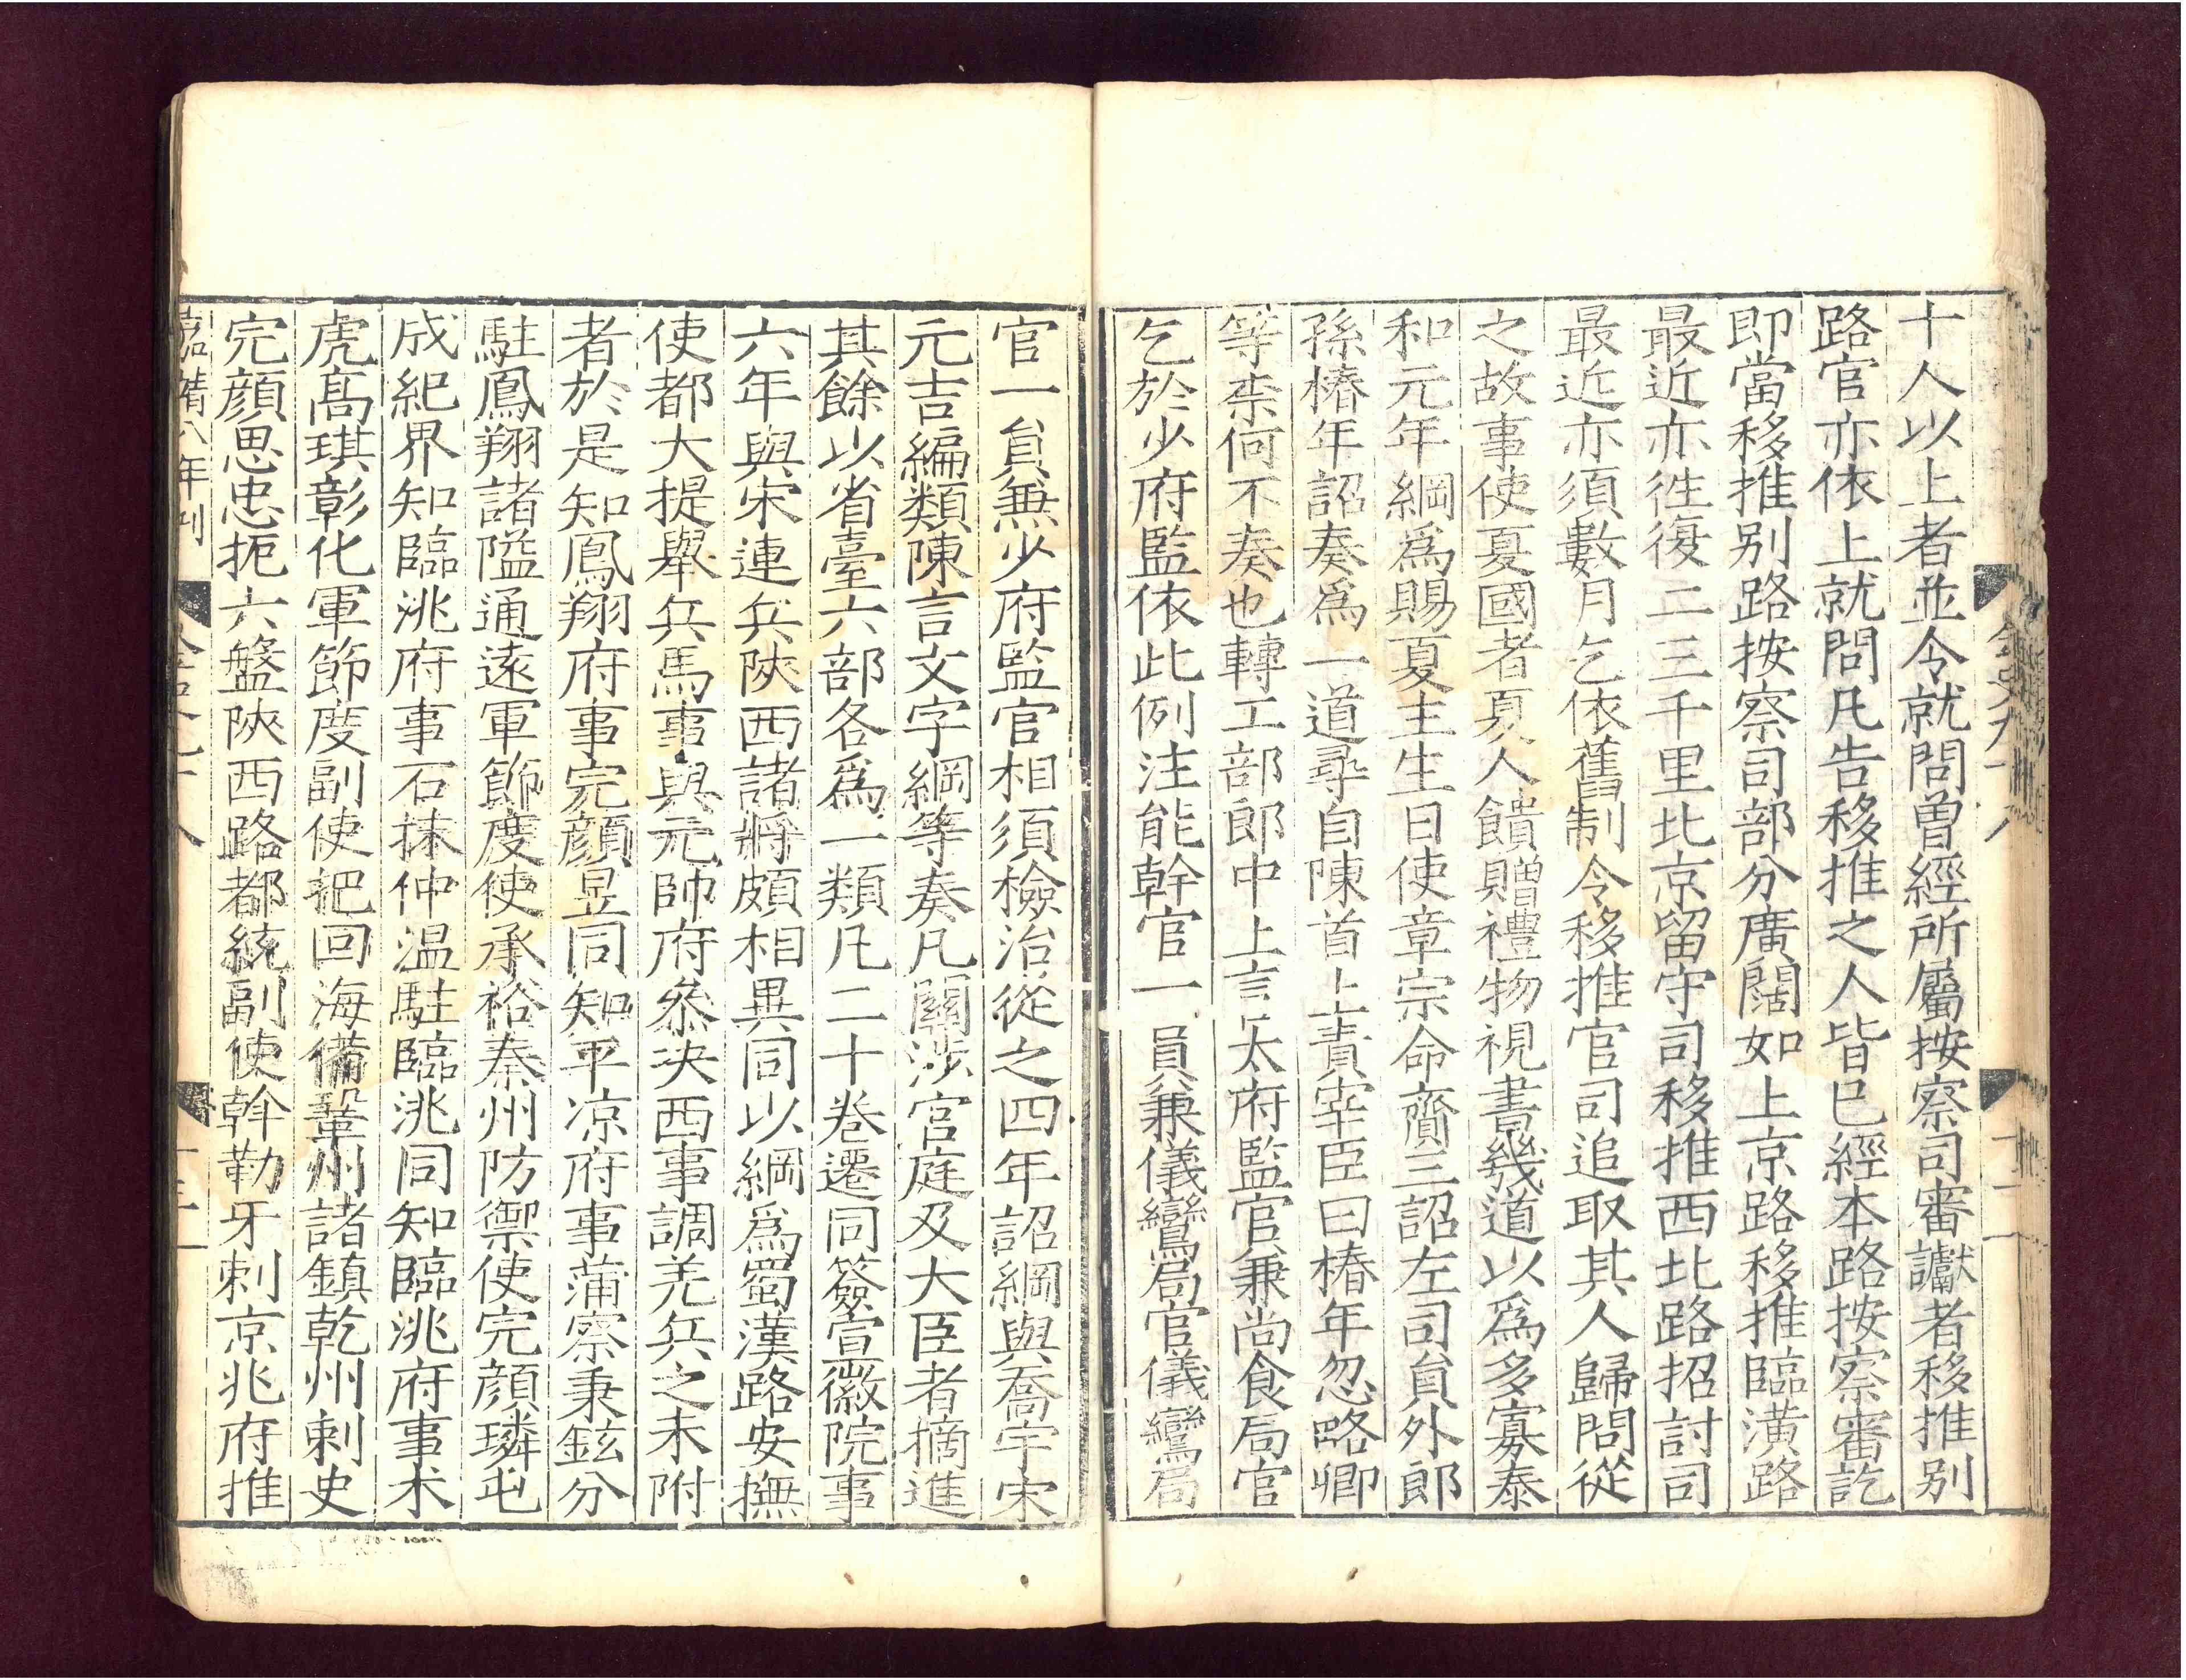 十人以上者並令就問曽經所屬按察司審讞者移推别
路官亦依上就問凡告移推之人皆已經本路按察審訖
即當移推别路按察司部分廣闊如上京路移推臨潢路
最近亦徃復二三千里北京留守司移推西北路招討司
最近亦須數月乞依舊制令移推官司追取其人歸問從
之故事使夏國者夏人饋贈禮物視書幾道以爲多寡泰
和元年綱爲賜夏主生日使章宗命齎三詔左司貟外郎
孫椿年詔奏爲一道尋自陳首上責宰臣曰椿年忽略卿
等柰何不奏也轉工部郎中上言太府監官兼尚食局官
乞於少府監依此例注能幹官一員兼儀鸞局官儀鸞局
官一貟無少府監官相須檢治從之四年詔綱與喬宇宋
元吉編類陳言文字綱等奏凡關涉宮庭及大臣者摘進
其餘以省臺六部各爲一類凡二十卷遷同簽宣徽院事
六年與宋連兵陝西諸將頗相異同以綱爲蜀漢路安撫
使都大提舉兵馬事與元帥府叅决西事調羌兵之未附
者於是知鳳翔府事完顔昱同知平凉府事蒲察秉鉉分
駐鳳翔諸隘通遠軍節度使承裕秦州防禦使完顔璘屯
成紀界知臨洮府事石抹仲温駐臨洮同知臨洮府事术
虎髙琪彰化軍節度副使把回海備鞏州諸鎮乾州刺史
完顔思忠扼六盤陝西路都統副使斡勒牙剌京兆府推
嘉靖八年刊